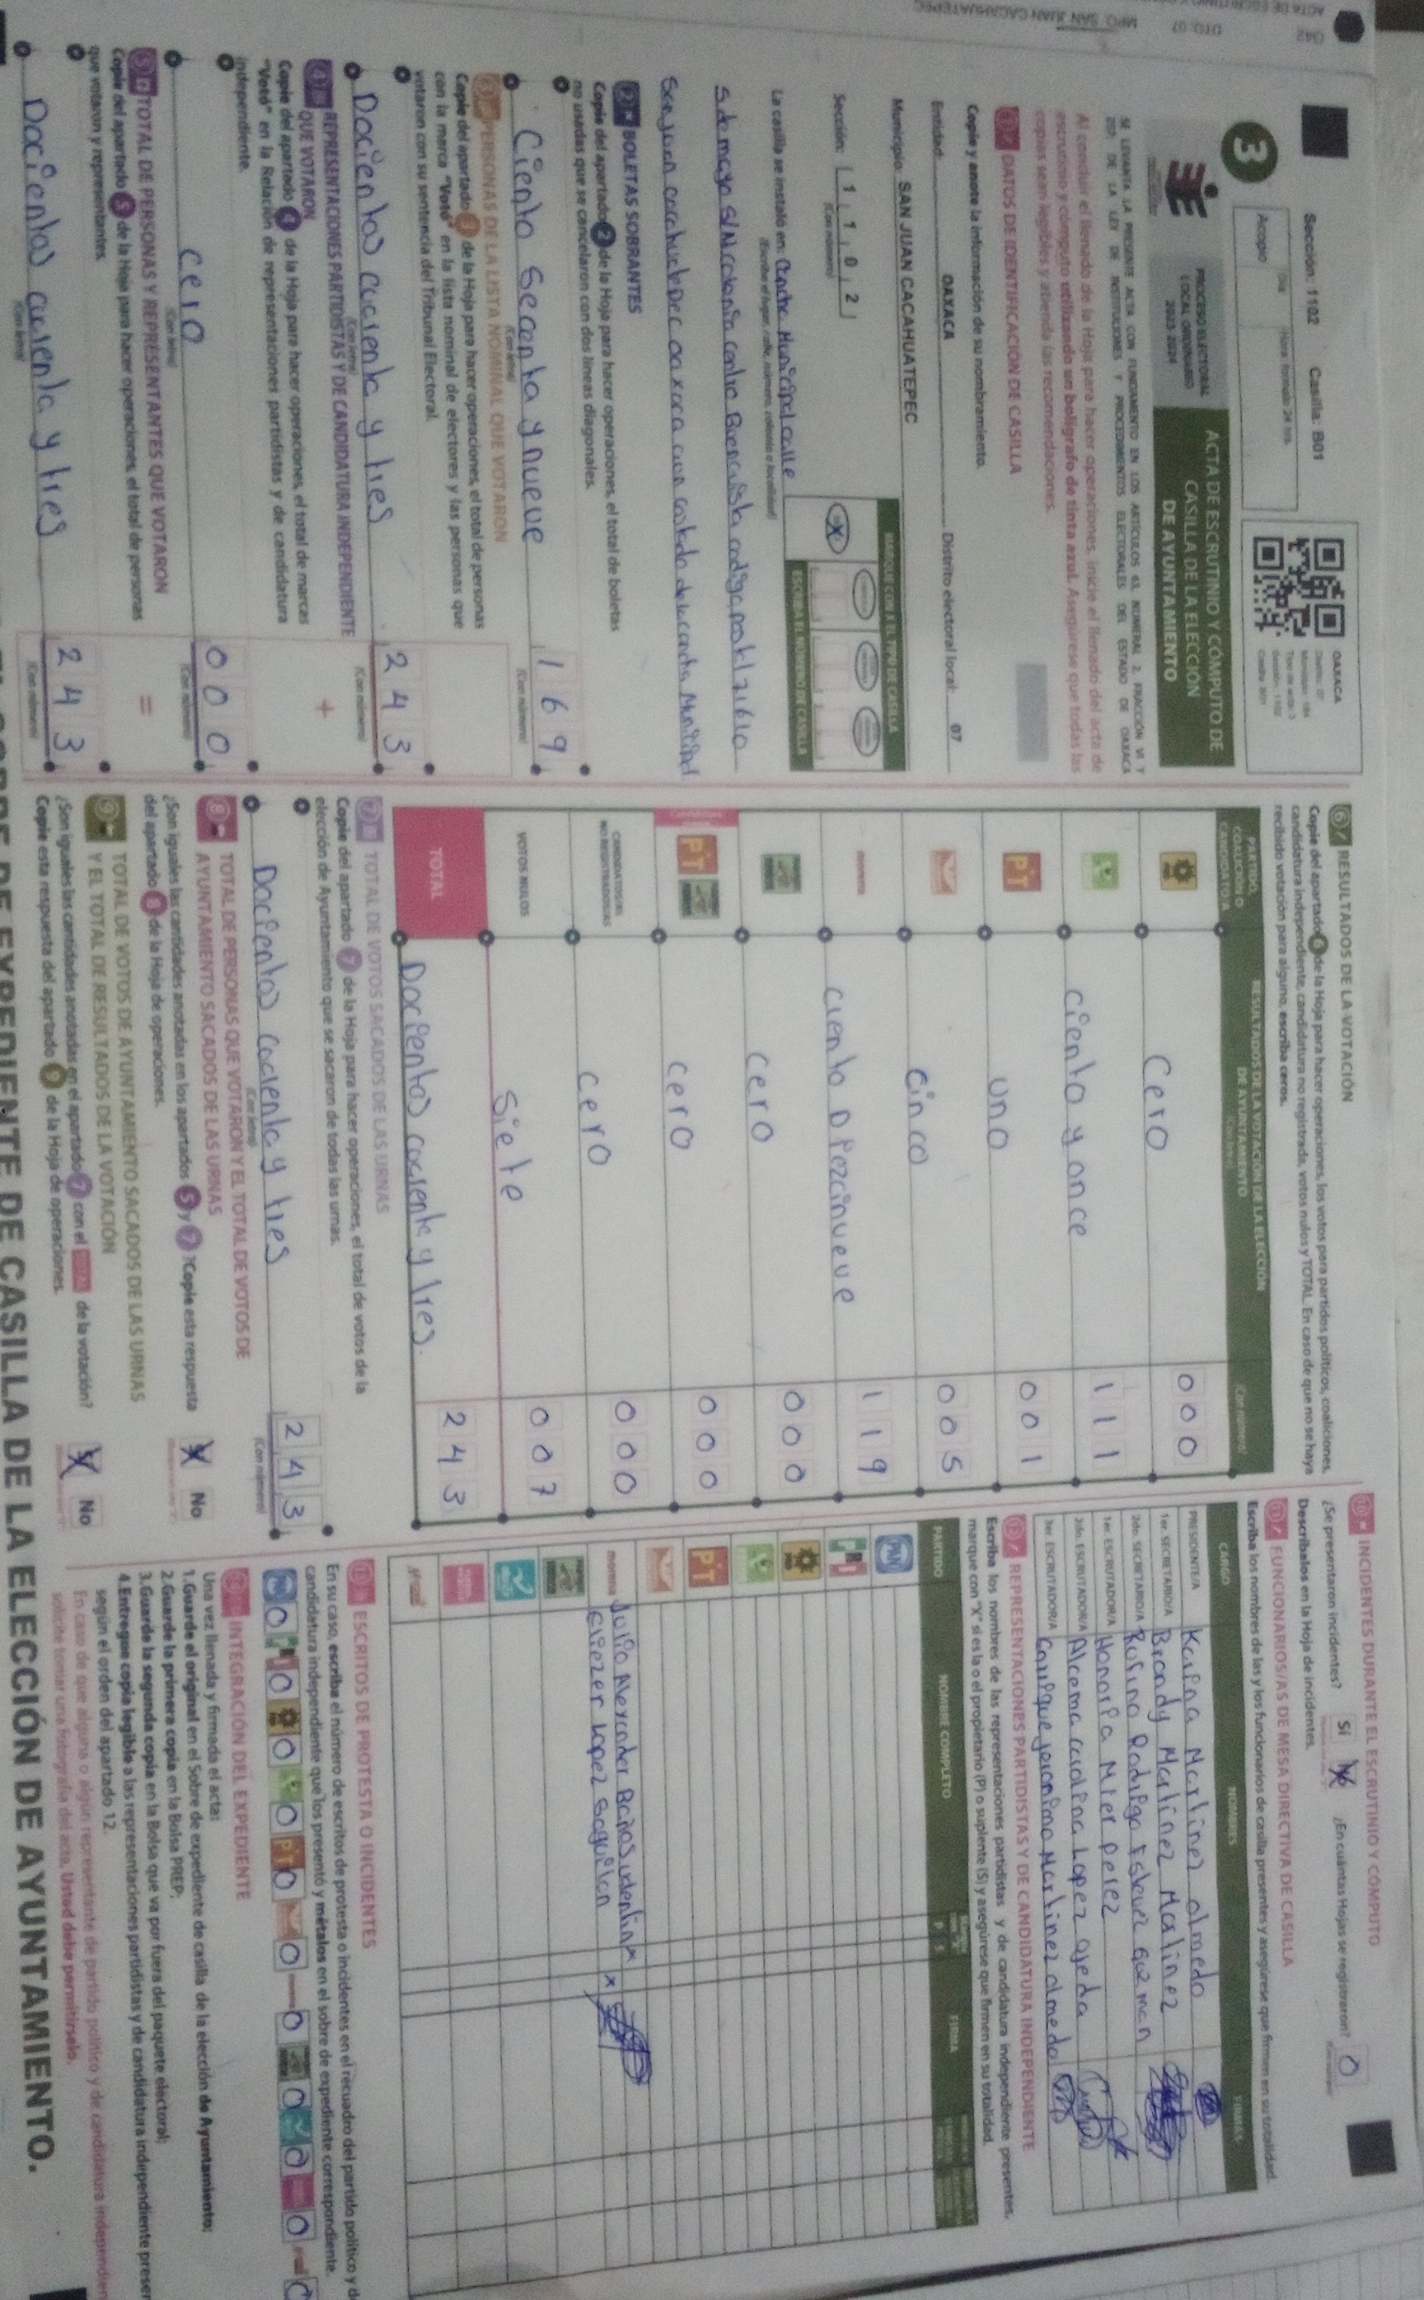 Sección: 1102 Casilla: B01
3
Acopio
OAXACA
PROCESO ELECTORAL
LOCAL ORDINARIO
2023-2024
ACTA DE ESCRUTINIO Y CÓMPUTO DE
CASILLA DE LA ELECCIÓN
DE AYUNTAMIENTO
SE LEVANTA LA PRESENTE ACTA CON FUNDAMENTO EN LOS ARTÍCULOS 63, NUMERAL 2, FRACCIÓN VI Y
DE LA LEY DE INSTITUCIONES Y PROCEDIMIENTOS ELECTORALES DEL ESTADO DE OAXACA
Al concluir el llenado de la Hoja para hacer operaciones, inicie el llenado del acta de
escrutinio y cómputo utilizando un bolígrafo de tinta azul. Asegúrese que todas las
copias sean legibles y atienda las recomendaciones.
1 DATOS DE IDENTIFICACIÓN DE CASILLA
Copie y anote la información de su nombramiento.
Entidad: OAXACA Distrito electoral local: 07
Municipio: SAN JUAN CACAHUATEPEC
Sección: 1 1 0 2
(Con número)
MARQUE CON X EL TIPO DE CASILLA
X
ESCRIBA EL NÚMERO DE CASILLA
La casilla se instaló en: Cancha Municipal calle
(Escriba el lugar, calle, número, colonia o localidad)
5 de mayo S/N colonia centro
2 BOLETAS SOBRANTES
Copie del apartado 2 de la Hoja para hacer operaciones, el total de boletas
no usadas que se cancelaron con dos líneas diagonales.
Ciento Secenta y nueve 1 6 9
(Con letra) (Con número)
3 PERSONAS DE LA LISTA NOMINAL QUE VOTARON
Copie del apartado 3 de la Hoja para hacer operaciones, el total de personas
con la marca "Votó" en la lista nominal de electores y las personas que
votaron con su sentencia del Tribunal Electoral.
Docientos cuarenta y tres 2 4 3
(Con letra) (Con número)
4 REPRESENTACIONES PARTIDISTAS Y DE CANDIDATURA INDEPENDIENTE
QUE VOTARON
+
Copie del apartado 4 de la Hoja para hacer operaciones, el total de marcas
"Votó" en la Relación de representaciones partidistas y de candidatura
independiente.
cero 0 0 0
(Con letra) (Con número)
5 TOTAL DE PERSONAS Y REPRESENTANTES QUE VOTARON
=
Copie del apartado 5 de la Hoja para hacer operaciones, el total de personas
que votaron y representantes.
Docientos cuarenta y tres 2 4 3
(Con letra) (Con número)
6 RESULTADOS DE LA VOTACIÓN
Copie del apartado 6 de la Hoja para hacer operaciones, los votos para partidos políticos, coaliciones,
candidatura independiente, candidatura no registrada, votos nulos y TOTAL. En caso de que no se haya
recibido votación para alguno, escriba ceros.
PARTIDO, COALICIÓN O CANDIDATO/A
RESULTADOS DE LA VOTACIÓN DE LA ELECCIÓN
DE AYUNTAMIENTO
(Con letra) (Con número)
PRD Cero 0 0 0
Ciento y once 1 1 1
PT uno 0 0 1
cinco 0 0 5
morena ciento Diezcinueve 1 1 9
cero 0 0 0
PT cero 0 0 0
CANDIDATOS/AS NO REGISTRADOS/AS cero 0 0 0
VOTOS NULOS siete 0 0 7
TOTAL Docientos cuarenta y tres. 2 4 3
7 TOTAL DE VOTOS SACADOS DE LAS URNAS
Copie del apartado 7 de la Hoja para hacer operaciones, el total de votos de la
elección de Ayuntamiento que se sacaron de todas las urnas.
Docientos cuarenta y tres 2 4 3
(Con letra) (Con número)
8 TOTAL DE PERSONAS QUE VOTARON Y EL TOTAL DE VOTOS DE
AYUNTAMIENTO SACADOS DE LAS URNAS
¿Son iguales las cantidades anotadas en los apartados 5 y 7? Copie esta respuesta X No
del apartado 8 de la Hoja de operaciones.
9 TOTAL DE VOTOS DE AYUNTAMIENTO SACADOS DE LAS URNAS
Y EL TOTAL DE RESULTADOS DE LA VOTACIÓN
¿Son iguales las cantidades anotadas en el apartado 7 con el TOTAL de la votación? X No
Copie esta respuesta del apartado 9 de la Hoja de operaciones.
10 INCIDENTES DURANTE EL ESCRUTINIO Y CÓMPUTO
¿Se presentaron incidentes? Sí X ¿En cuántas Hojas se registraron? 0
Descríbalos en la Hoja de incidentes.
11 FUNCIONARIOS/AS DE MESA DIRECTIVA DE CASILLA
Escriba los nombres de las y los funcionarios de casilla presentes y asegúrese que firmen en su totalidad.
CARGO NOMBRES FIRMAS
PRESIDENTE/A Karina Martinez olmedo
1er. SECRETARIO/A Brandy Martinez Martinez
2do. SECRETARIO/A Rufino Rodrigo Estevez Guzman
1er. ESCRUTADOR/A Honoria Mier perez
2do. ESCRUTADOR/A carolina Lopez ojeda
3er. ESCRUTADOR/A Enrique jeronimo Martinez olmedo
12 REPRESENTACIONES PARTIDISTAS Y DE CANDIDATURA INDEPENDIENTE
Escriba los nombres de las representaciones partidistas y de candidatura independiente presentes,
marque con "X" si es la o el propietario (P) o suplente (S) y asegúrese que firmen en su totalidad.
PARTIDO NOMBRE COMPLETO P S FIRMA
PAN
PRI
PRD
PT
morena Julio Alexander Baños X
Eliezer Lopez Saguilan X
13 ESCRITOS DE PROTESTA O INCIDENTES
En su caso, escriba el número de escritos de protesta o incidentes en el recuadro del partido político y d
candidatura independiente que los presentó y métalos en el sobre de expediente correspondiente.
0 0 0 0 0 0 0 0 0 0 0
INTEGRACIÓN DEL EXPEDIENTE
Una vez llenada y firmada el acta:
1. Guarde el original en el Sobre de expediente de casilla de la elección de Ayuntamiento;
2. Guarde la primera copia en la Bolsa PREP;
3. Guarde la segunda copia en la Bolsa que va por fuera del paquete electoral;
4. Entregue copia legible a las representaciones partidistas y de candidatura independiente presen
según el orden del apartado 12.
En caso de que alguna o algún representante de partido político y de candidatura independien
solicite tomar una fotografía del acta, Usted debe permitírselo.
DE EXPEDIENTE DE CASILLA DE LA ELECCIÓN DE AYUNTAMIENTO.